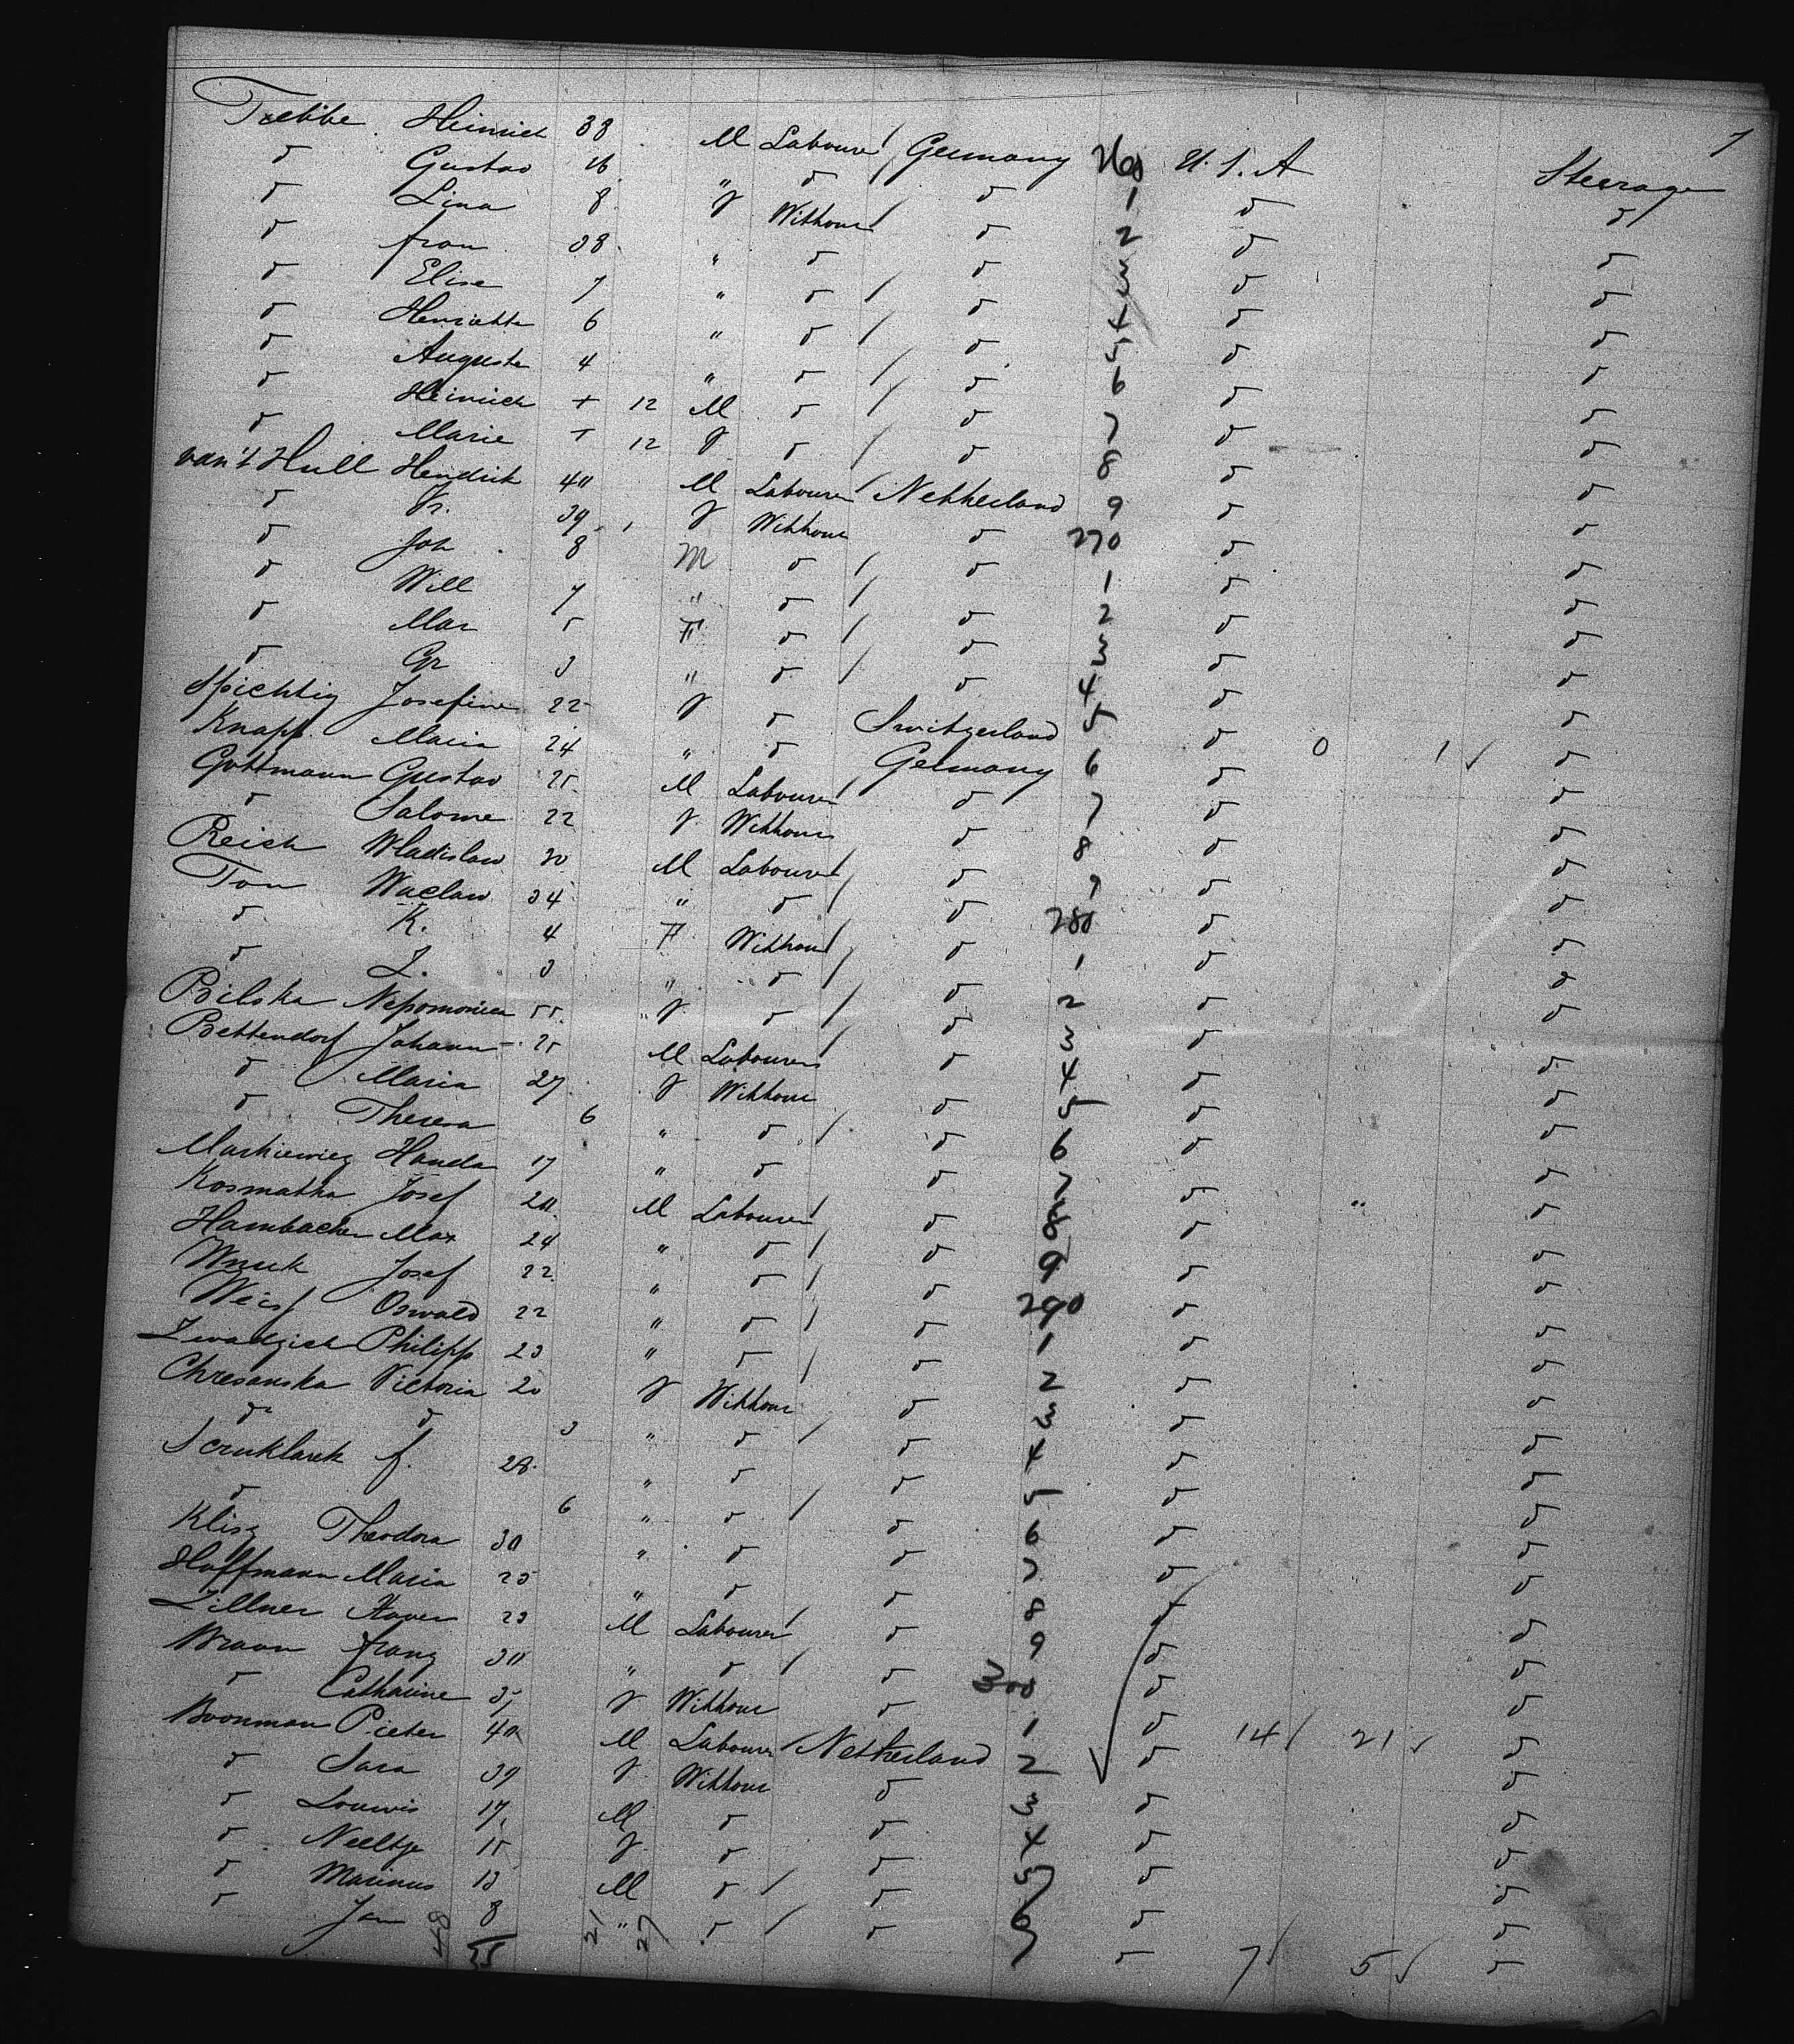 7
Trebbe Heinrich 38 M Labourer / Germany 260 U.S.A Steerage
" Gustav 16 " " / " 1 " "
" Lina 8 F Without / " 2 " "
" frau 38 " " " 3 " "
" Elise 7 " " / " 4 " "
" Henriette 6 " " / " 5 " "
" Auguste 4 " " / " 6 " "
" Heinrich + 12 M " / " 7 " "
" Marie + 12 F " / " 8 " "
van't Hull Hendrik 40 M Labourer Netherland 9 " "
" 39 F Without " 270 " "
" Joh 8 M " / " 1 " "
" Will 7 " " / " 2 " "
" Mar 5 F " / " 3 " "
" Gr 3 " " / " 4 " "
Spichtig Josefine 22 F " Switzerland 5 " "
Knapp Maria 24 " " Germany 6 " 0 1 ✓ "
Guttmann Gustav 25 M Labourer " 7 " "
" Salome 22 F Without " 8 " "
Reich Wladislaw 30 M Labourer / " 9 " "
Ton Waclaw 34 " " / " 280 " "
" K. 4 F Without / " 1 " "
" Z. 3 " " / " 2 " "
Bilska Nepomonica 55 " F " / " 3 " "
Bettendorf Johann 25 M Labourer " 4 " "
" Maria 27 F Without " 5 " "
" Theresa 6 " " / " 6 " "
Markiewicz Handa 17 " " " 7 " "
Kosmatka Josef 20 M Labourer / " 8 " "
Hambacher Max 24 " " / " 9 " "
Wnuk Josef 22 " " / " 290 " "
Weiss Oswald 22 " " / " 1 " "
Philipp 23 " " / " 2 " "
Chresanska Victoria 20 F Without " 3 " "
" " 3 " " / " 4 " "
f. 28 " " " 5 " "
" 6 " " / " 6 " "
Klisz Theodora 30 " " " 7 " "
Hoffmann Maria 25 " " " 8 " "
Zillner Xaver 23 M Labourer / " 9 " "
Braun franz 30 " " / " 300 " "
" Catharine 35 F Without " 1 " "
Boonman Pieter 40 M Labourer / Netherland 2 " 14 / 21 ✓ "
" Sara 39 F Without " 3 " "
" Louwis 17 M " " 4 " "
" Neeltje 15 F " " 5 " "
" Marinus 13 M " / " 6 " "
" Jan 8 " " / " 7 " 7 / 5 ✓ "
48 21 27